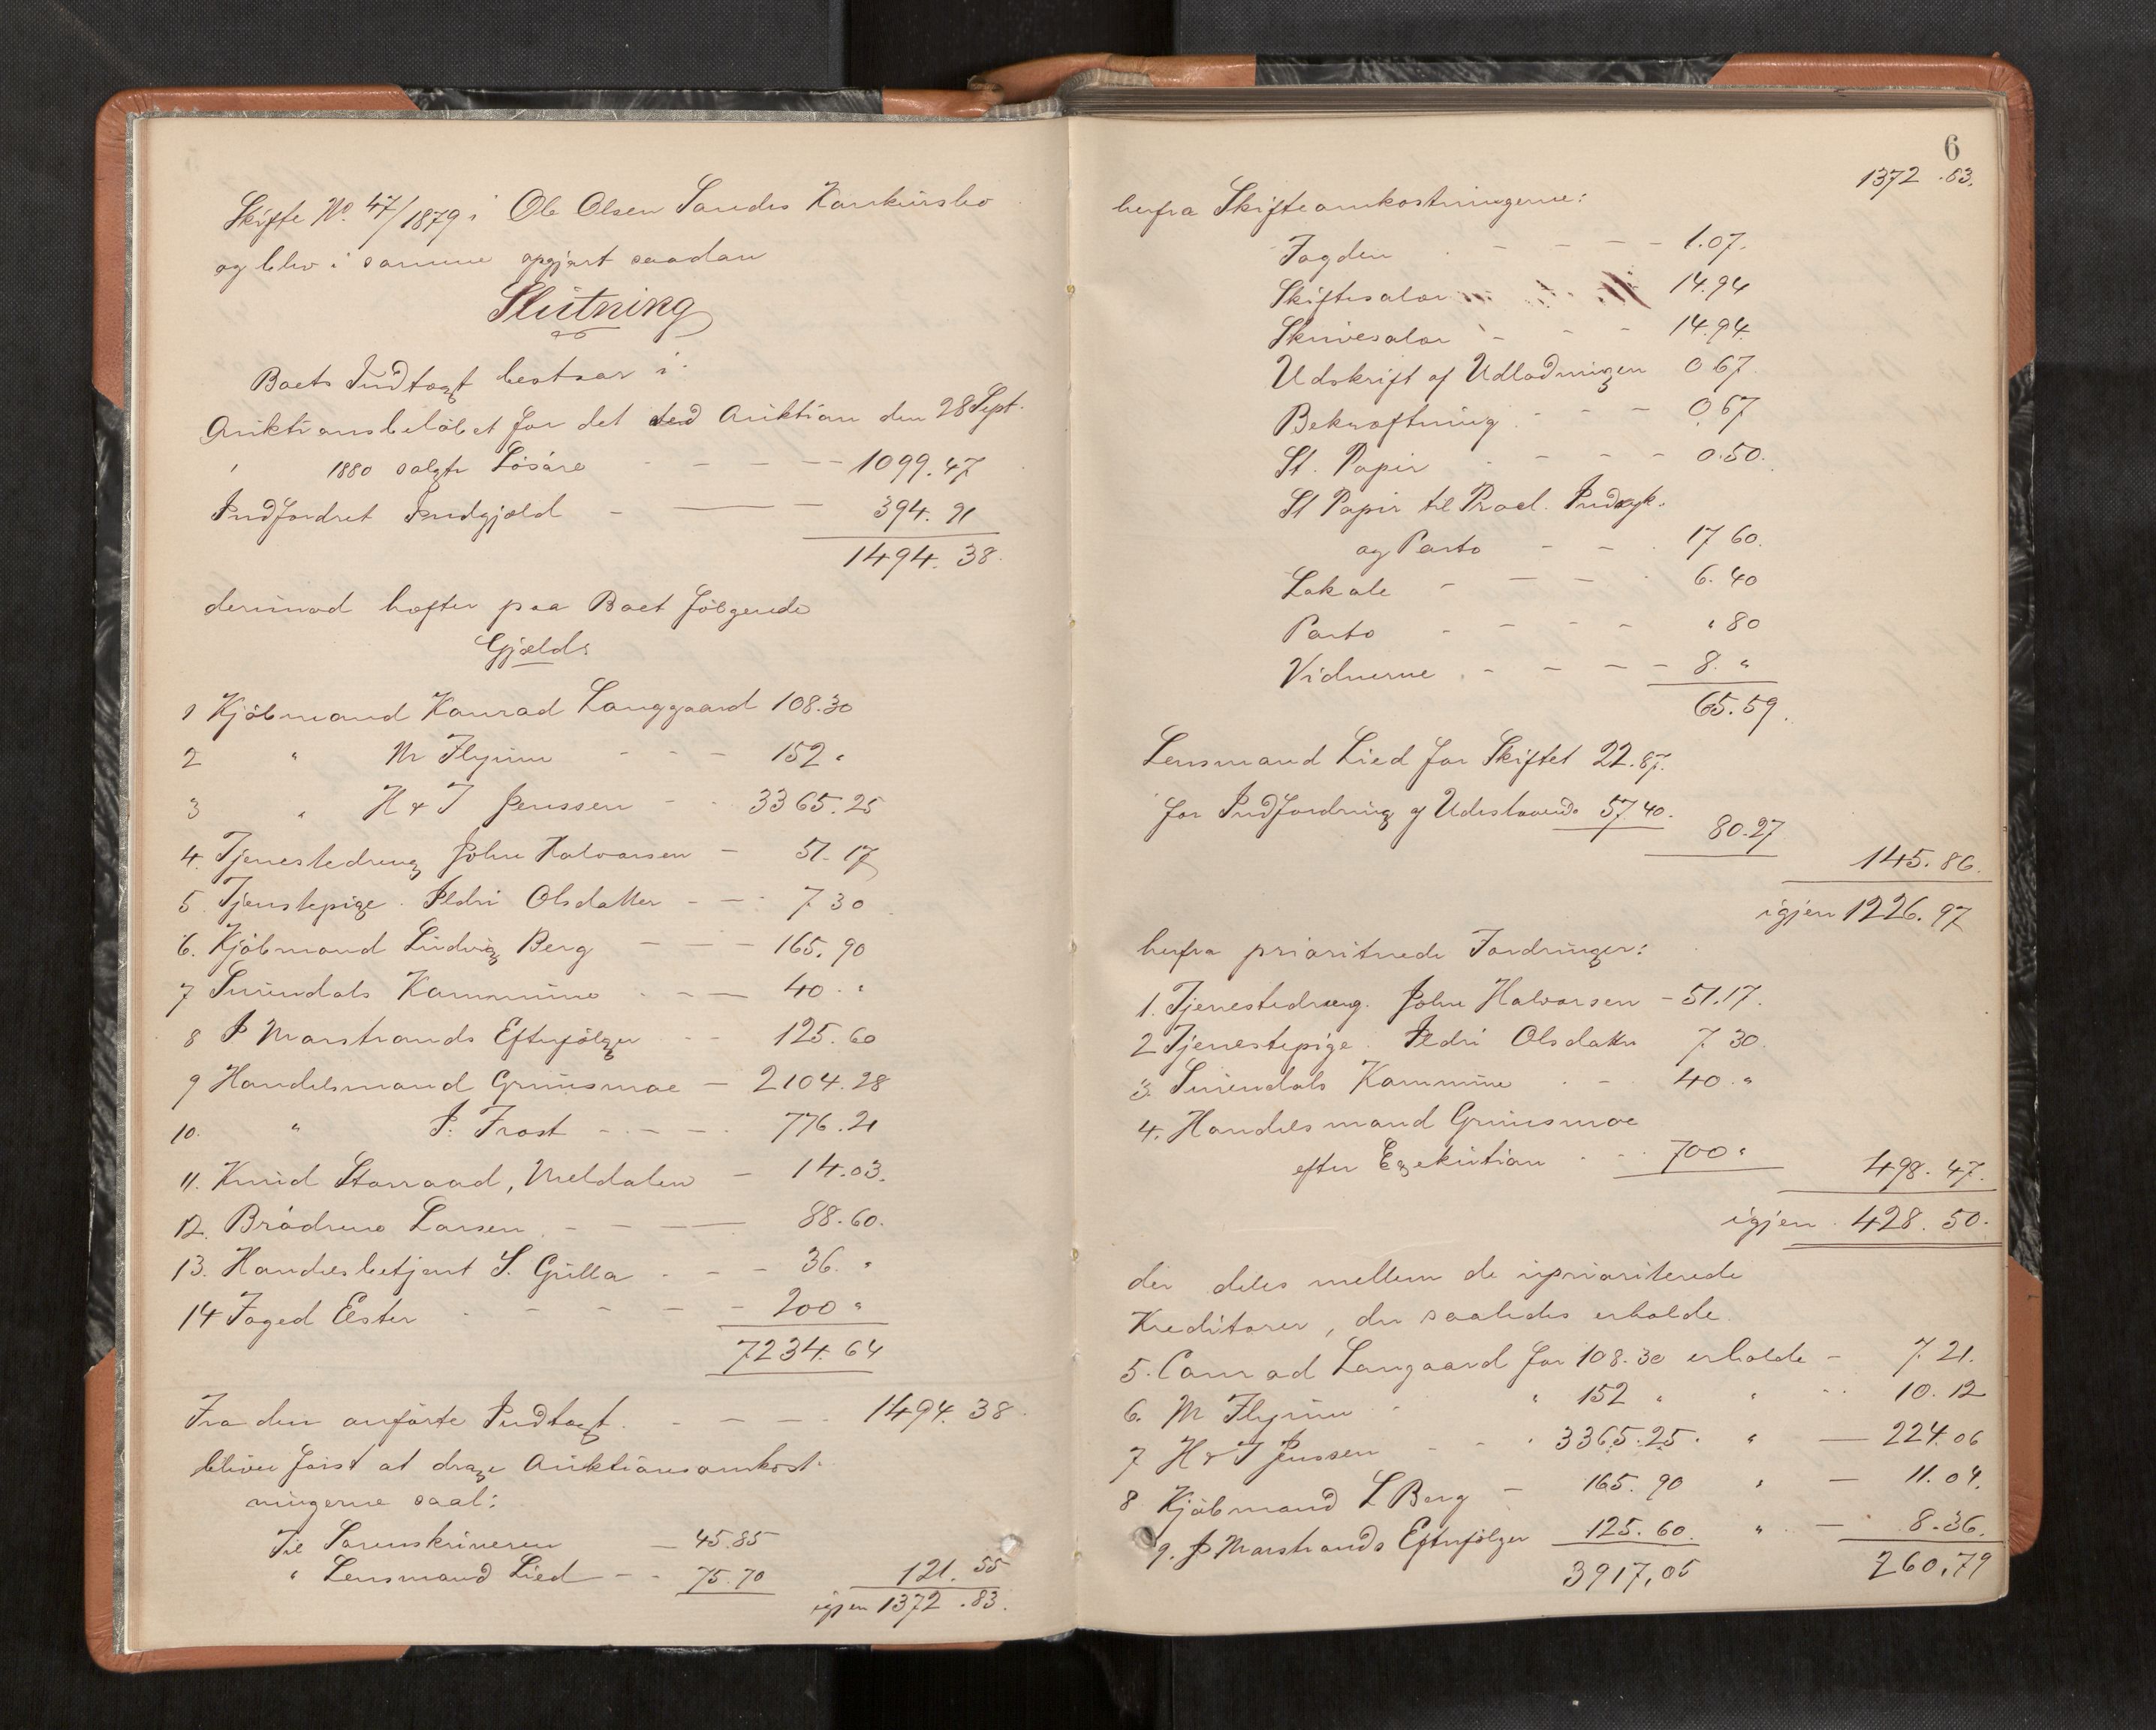 Skifte No. 47/1879 i Ole Olsen Sandes Konkursbo
og blev i samme opgjort saadan
Slutning
Boets Indtægt bestaar i
Auktionsbeløbet for det ved Auktion den 28 Sept.
1880 solgte Løsøre - - - - 1099.47
Indfordret Indgjæld - — - 394.91
1494.38.
derimod hæfter paa Boet følgende
Gjæld:
1 Kjøbmand Konrad Langgaard 108.30
2 " M Flyum - - - 152 "
3 " H & I Jenssen - - 3365.25
4. Tjenestedreng John Halvorsen - 51.17
5. Tjenstepige. Ildri Olsdatter - - 7 30
6. Kjøbmand Ludvig Berg - - - 165.90
7 Surendals Kommune - - - 40. "
8 P Marstrands Efterfølger - - 125.60
9 Handelsmand Grinsmoe - 2104.28
10. " P. Frost - - - - 776.21
11. Knud Storraad, Meldalen - 14.03.
12. Brødrene Larsen - - — 88.60.
13. Handelsbetjent S. Gulla - - - 36. "
14 Foged Elster - - - - - 200 "
7234.64
Fra den anførte Indtægt. - - - 1494.38
bliver først at drage Auktionsomkost-
ningerne saal:
Til Sorenskriveren - 45.85
" Lensmand Lied - - 75.70 121.55
igjen 1372.83.
6
1372.83.
herfra Skifteomkostningerne:
Fogden - - - - 1.07.
Skiftesalær 14.94
Skrivesalær - - - 14.94.
Udskrift af Udlodningen 0 67.
Bekræftning - - - 0.67
St. Papir - - - - 0.50.
St Papir til Procl. Indryk.
og Porto - - . 17 60.
Lokale - - - . 6.40
Porto - - - - " 80
Vidnerne - - - - 8. "
65.59.
Lensmand Lied for Skiftet 22.87.
for Indfordring af Udestaaende 57.40. 80.27
145.86.
igjen 1226.97
herfra prioriterede Fordringer:
1. Tjenestedreng. John Halvorsen - 51.17.
2 Tjenestepige. Ildri Olsdatter 7 30.
3. Surendals Kommune . - 40. "
4. Handelsmand Grinsmoe
efter Exekution - - 700 " 498.47.
igjen 428.50.
der deles mellem de uprioriterede
Kreditorer, der saaledes erholde
5. Conrad Langaard for 108.30 erholde - 7.21.
6. M Flyum - " 152 " " - - 10.12
7 H & I Jenssen - - " 3365.25. " — 224.06
8 Kjøbmand L Berg - 165.90 " — 11.04.
9. P Marstrands Efterfølger 125.60. " — 8.36.
3917,05 260,79